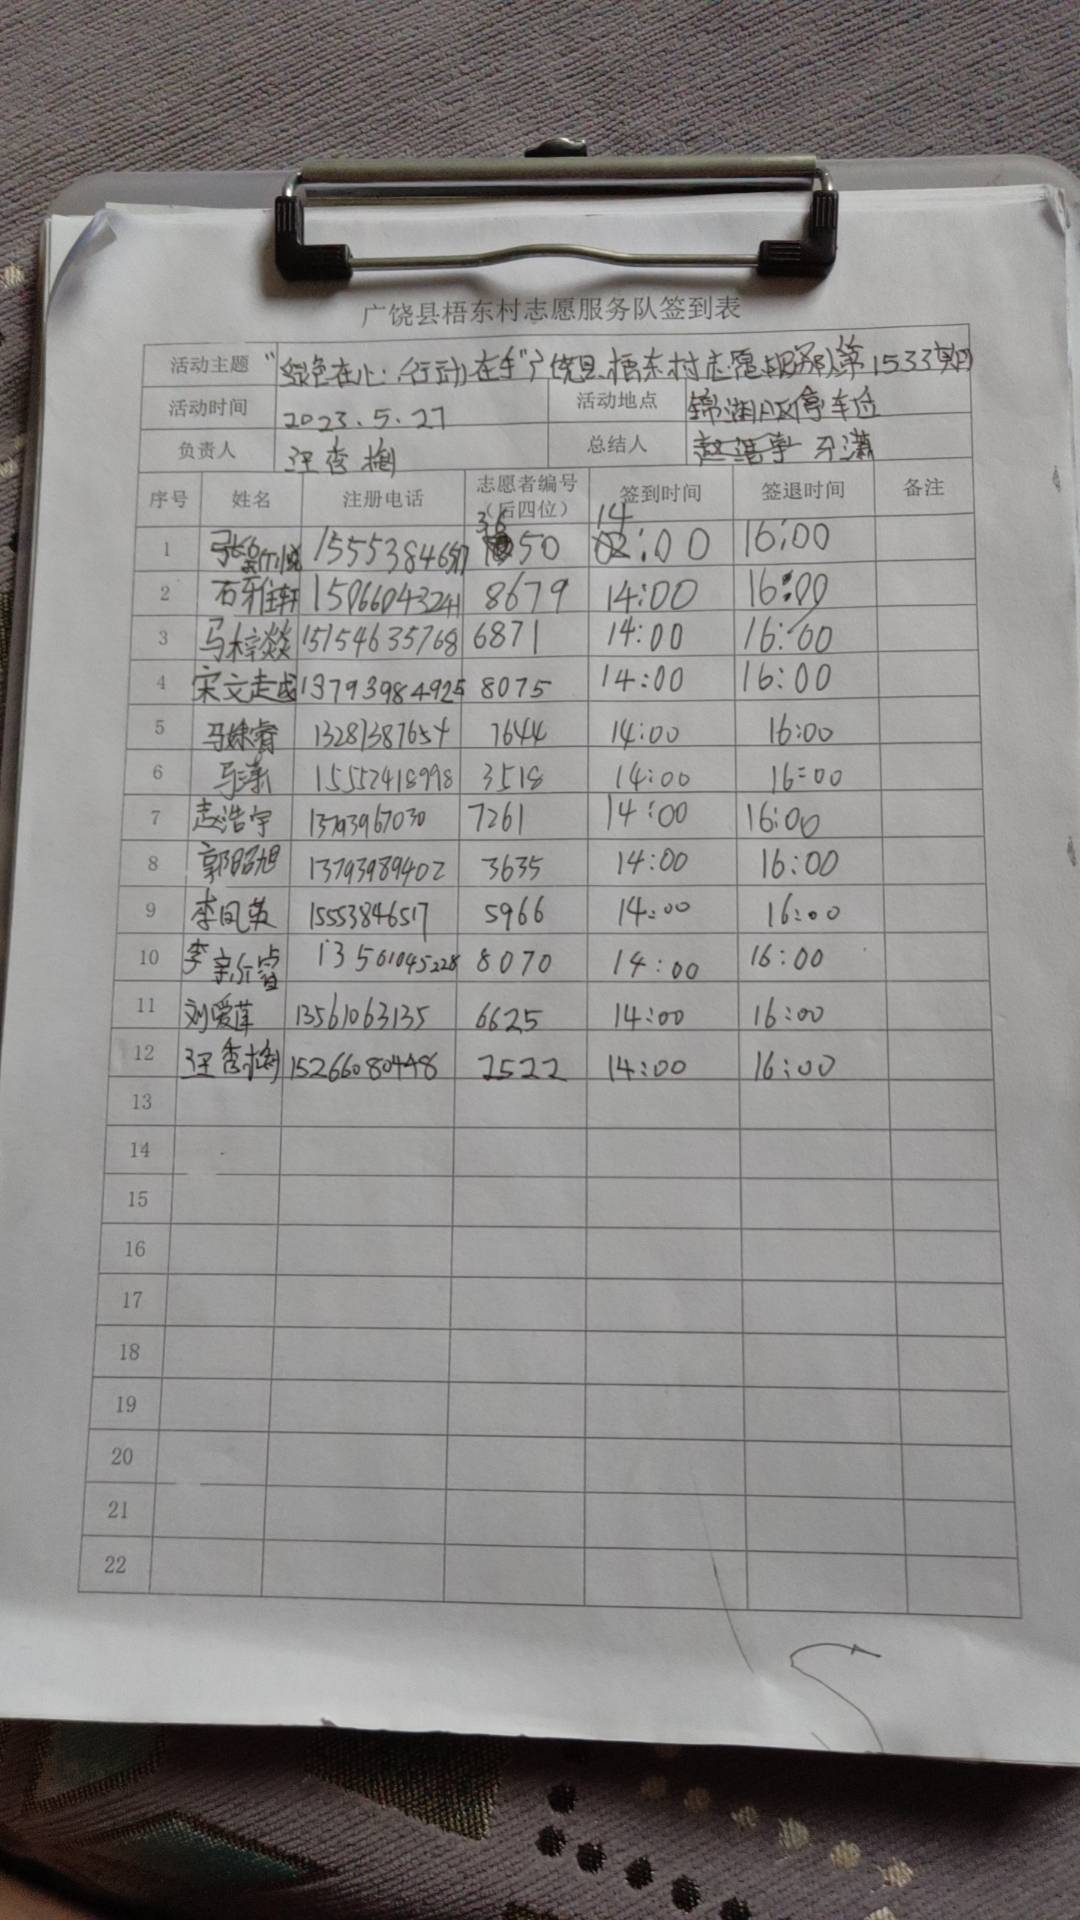 广饶县梧东村志愿服务队签到表
活动主题 "绿色在心,行动在手"广饶县梧东村志愿服务队第1533期
活动时间 2023.5.27 活动地点 锦湖A区停车位
负责人 汪秀梅 总结人 赵浩宇 马潇
序号 姓名 注册电话 志愿者编号（后四位） 签到时间 签退时间 备注
1 15553846517 3650 14:00 16:00
2 石雅轩 15066043241 8679 14:00 16:00
3 马梓焱 15154635768 6871 14:00 16:00
4 宋文走成 13793984925 8075 14:00 16:00
5 马姝睿 13281387654 7644 14:00 16:00
6 马潇 15552418998 3518 14:00 16:00
7 赵浩宇 13793967030 7261 14:00 16:00
8 郭昭旭 13793989402 3635 14:00 16:00
9 李凤英 15553846517 5966 14:00 16:00
10 李 13561045228 8070 14:00 16:00
11 刘爱莲 13561063135 6625 14:00 16:00
12 汪秀梅 15266080448 2522 14:00 16:00
13
14
15
16
17
18
19
20
21
22